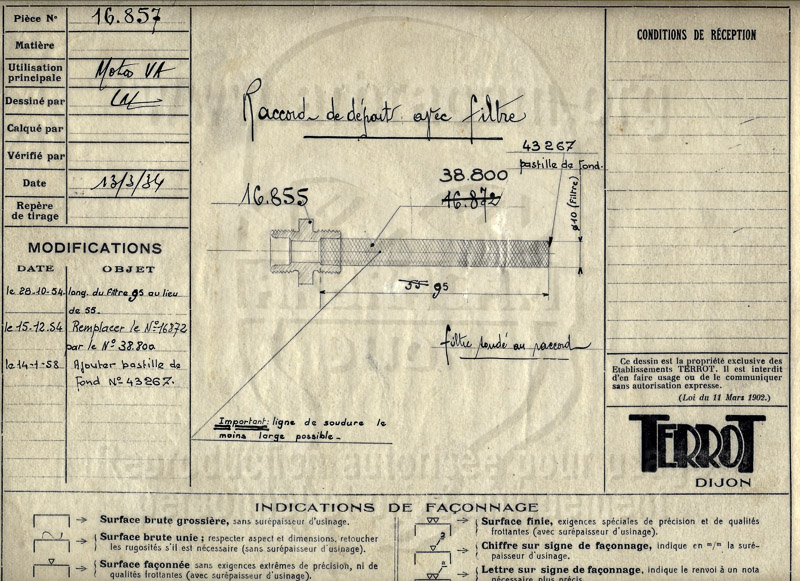 Pièce N° 16.857
Matière
Utilisation principale Motos VA
Dessiné par
Calqué par
Vérifié par
Date 13/3/34
Repère de tirage
MODIFICATIONS
DATE OBJET
le 28-10-54. long. du filtre 95 au lieu
de 55.
le 15-12.54 Remplacer le N° 16872
par le N° 38.800
le 14-1-58. Ajouter pastille de
Fond N° 43267.
Raccord de départ avec filtre
43267
pastille de Fond.
38.800
16.872
16.855
ø10 (filtre)
55 95
filtre soudé au raccord
Important: ligne de soudure le
moins large possible.
CONDITIONS DE RÉCEPTION
Ce dessin est la propriété exclusive des
Etablissements TERROT. Il est interdit
d'en faire usage ou de le communiquer
sans autorisation expresse.
(Loi du 11 Mars 1902.)
TERROT
DIJON
INDICATIONS DE FAÇONNAGE
Surface brute grossière, sans surépaisseur d'usinage.
Surface brute unie; respecter aspect et dimensions, retoucher
les rugosités s'il est nécessaire (sans surépaisseur d'usinage).
Surface façonnée sans exigences extrêmes de précision, ni de
qualités frottantes (avec surépaisseur d'usinage).
Surface finie, exigences spéciales de précision et de qualités
frottantes (avec surépaisseur d'usinage).
Chiffre sur signe de façonnage, indique en m/m la suré-
paisseur d'usinage.
Lettre sur signe de façonnage, indique le renvoi à un nota
nécessaire plus précis.